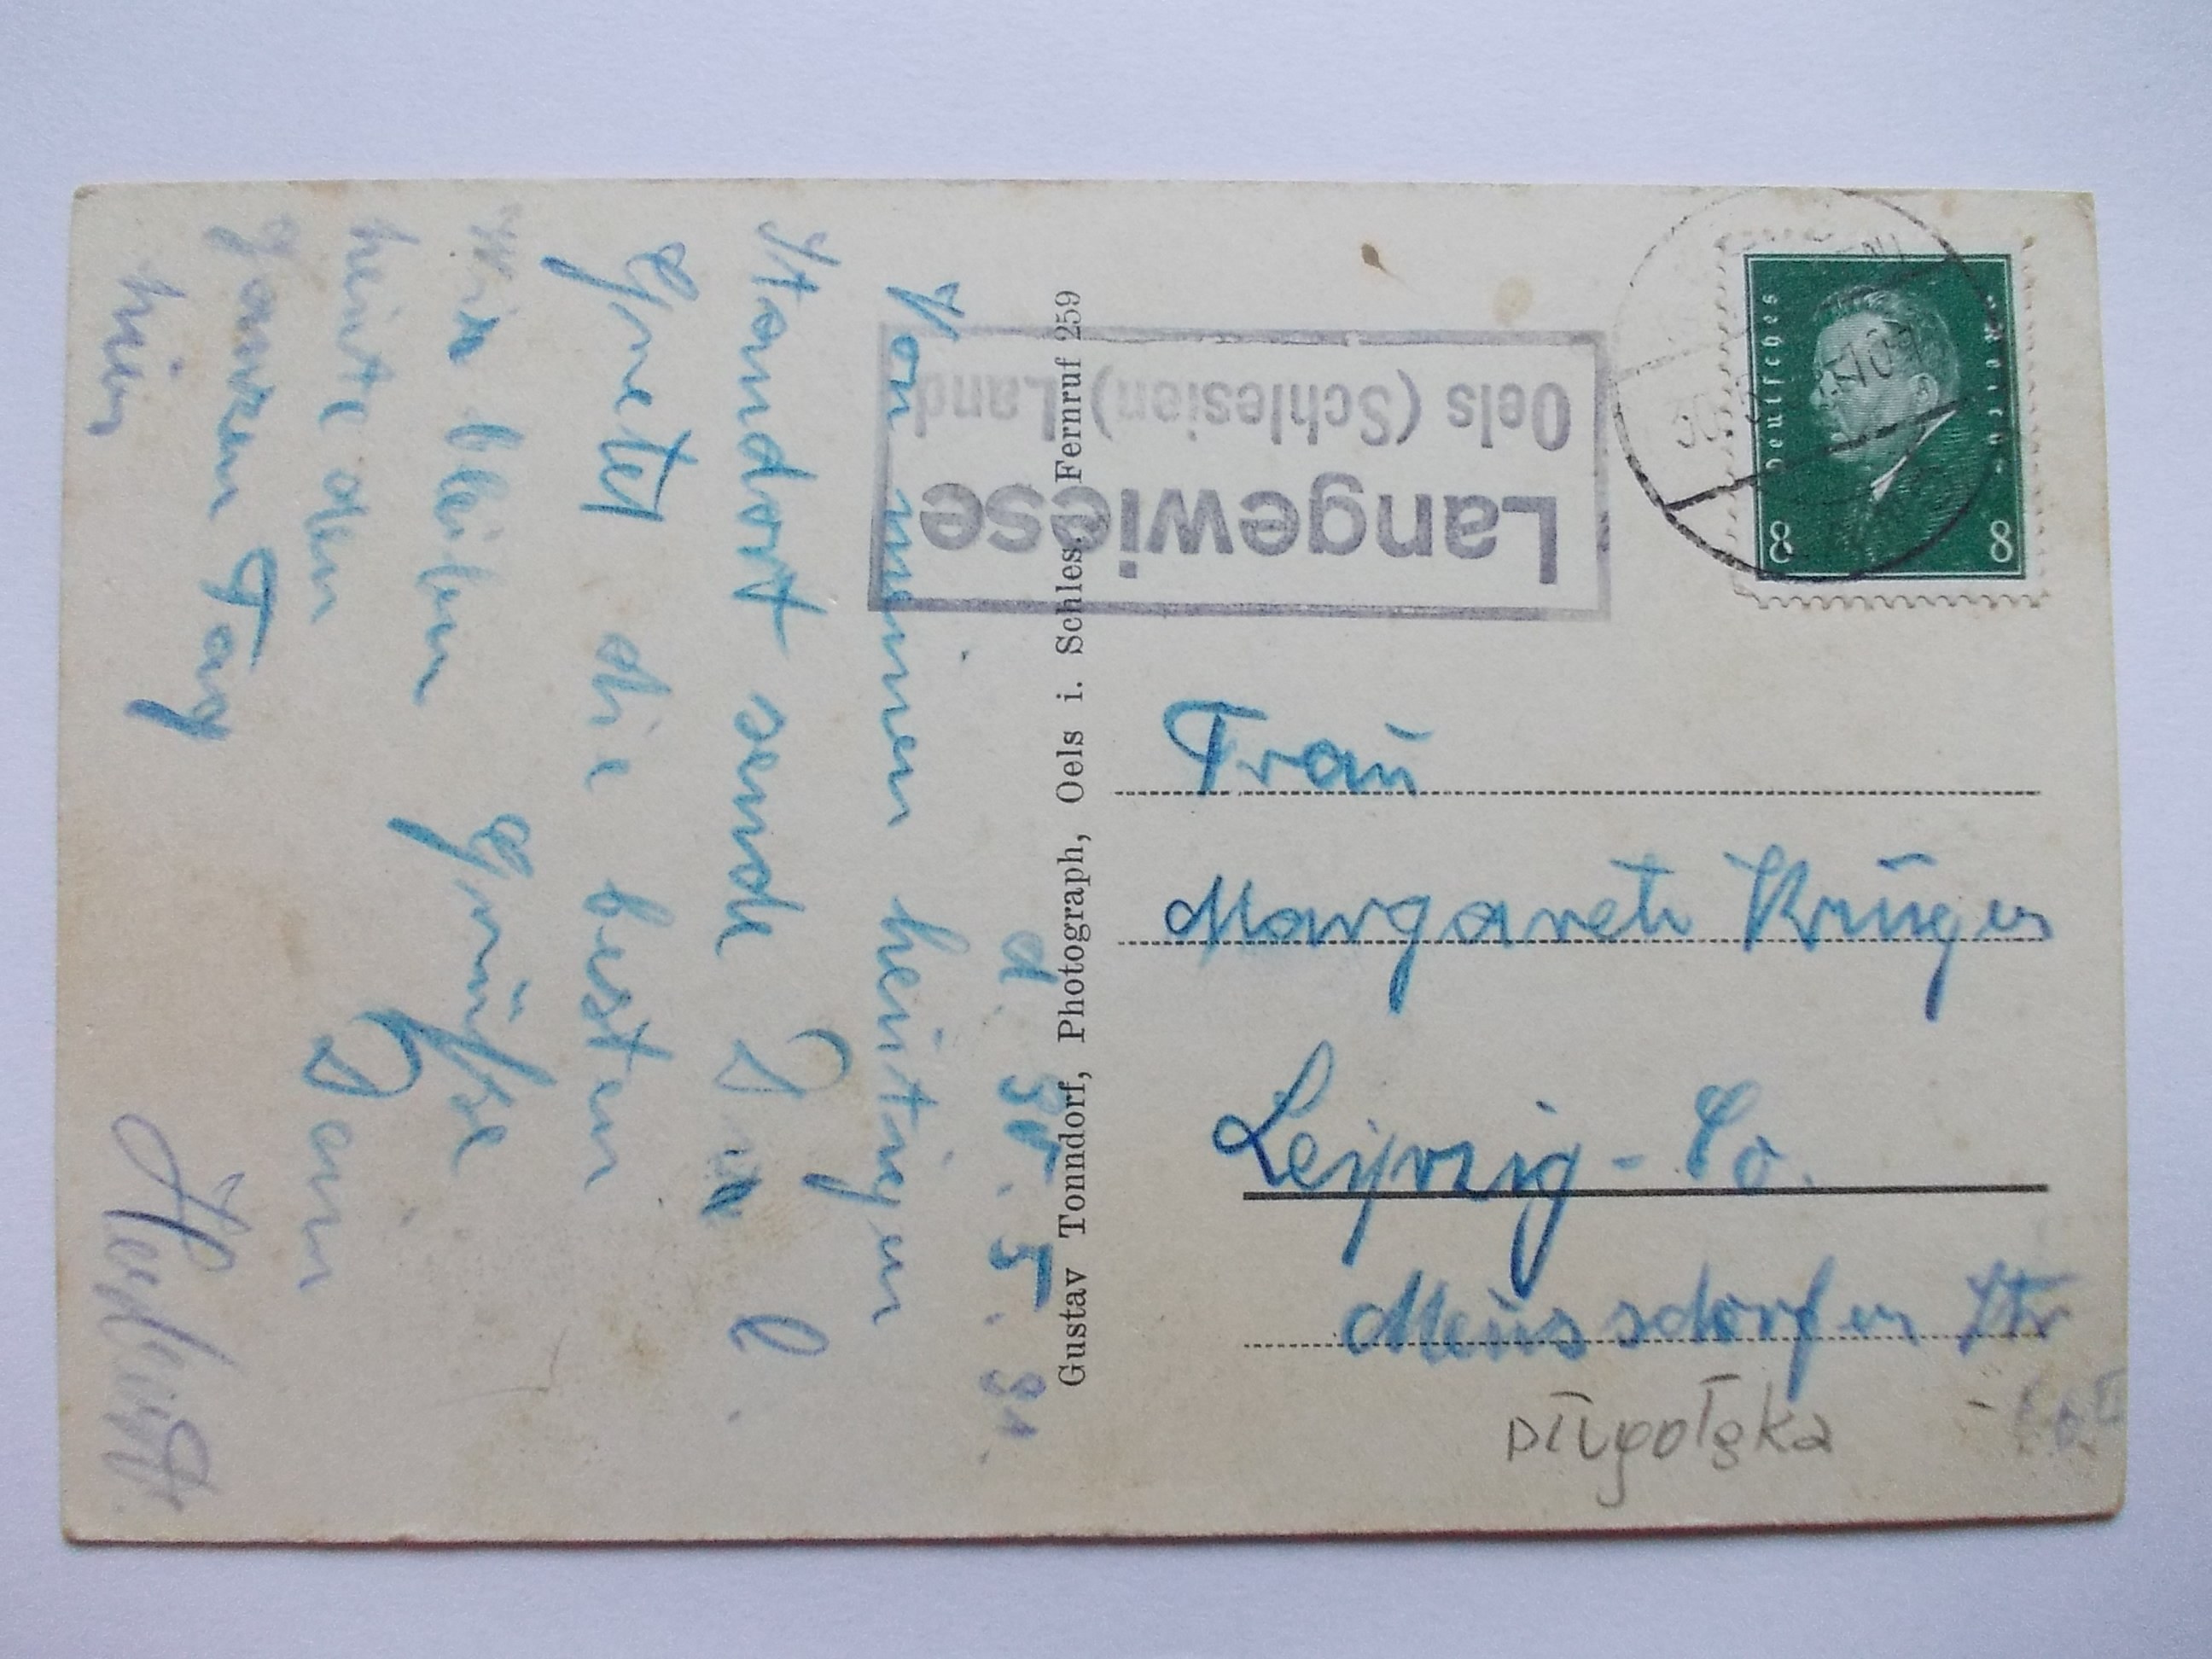 d. 30. 5. 31.
Von meinen heutigen
Standort sende Dir l.
Gretel die besten
Grüsse
Dein
Wir bleiben
heute den
ganzen Tag
hier
Gustav Tonndorf, Photograph, Oels i. Schles. Fernruf 259
Langewiese
Oels (Schlesien) Land
Deutsches Reich
8 8
Frau
Margarete Krüger
Leipzig - Co.
Meusdorfer Str
Długołęka